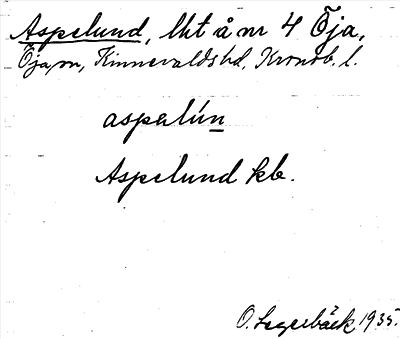 Aspelund, lht å nr 4 Öja,
Öja sn, Kinnevalds hd, Kronob. l.
aspəlún
Aspelund kb.
O. Lagerbäck 1935.